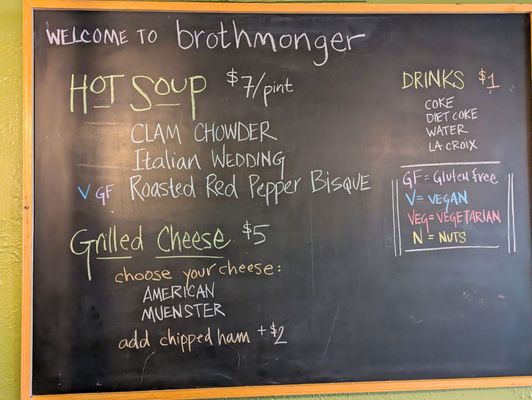 WELCOME TO brothmonger
HOT SOUP $7/pint
CLAM CHOWDER
Italian WEDDING
V GF Roasted Red Pepper Bisque
Grilled Cheese $5
choose your cheese:
AMERICAN
MUENSTER
add chipped ham +$2
DRINKS $1
COKE
DIET COKE
WATER
LA CROIX
GF = Gluten free
V = VEGAN
VEG = VEGETARIAN
N = NUTS